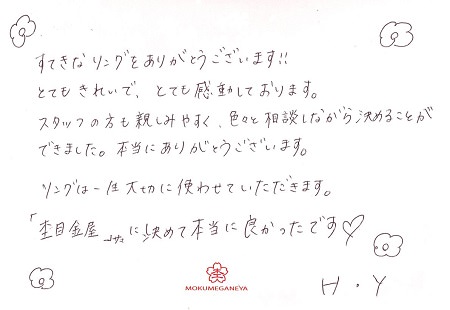 すてきなリングをありがとうございます!!
とてもきれいで、とても感動しております。
スタッフの方も親しみやすく、色々と相談しながら決めることが
できました。本当にありがとうございます。
リングは一生大切に使わせていただきます。
「杢目金屋」さんに決めて本当に良かったです♡
MOKUMEGANEYA
H・Y